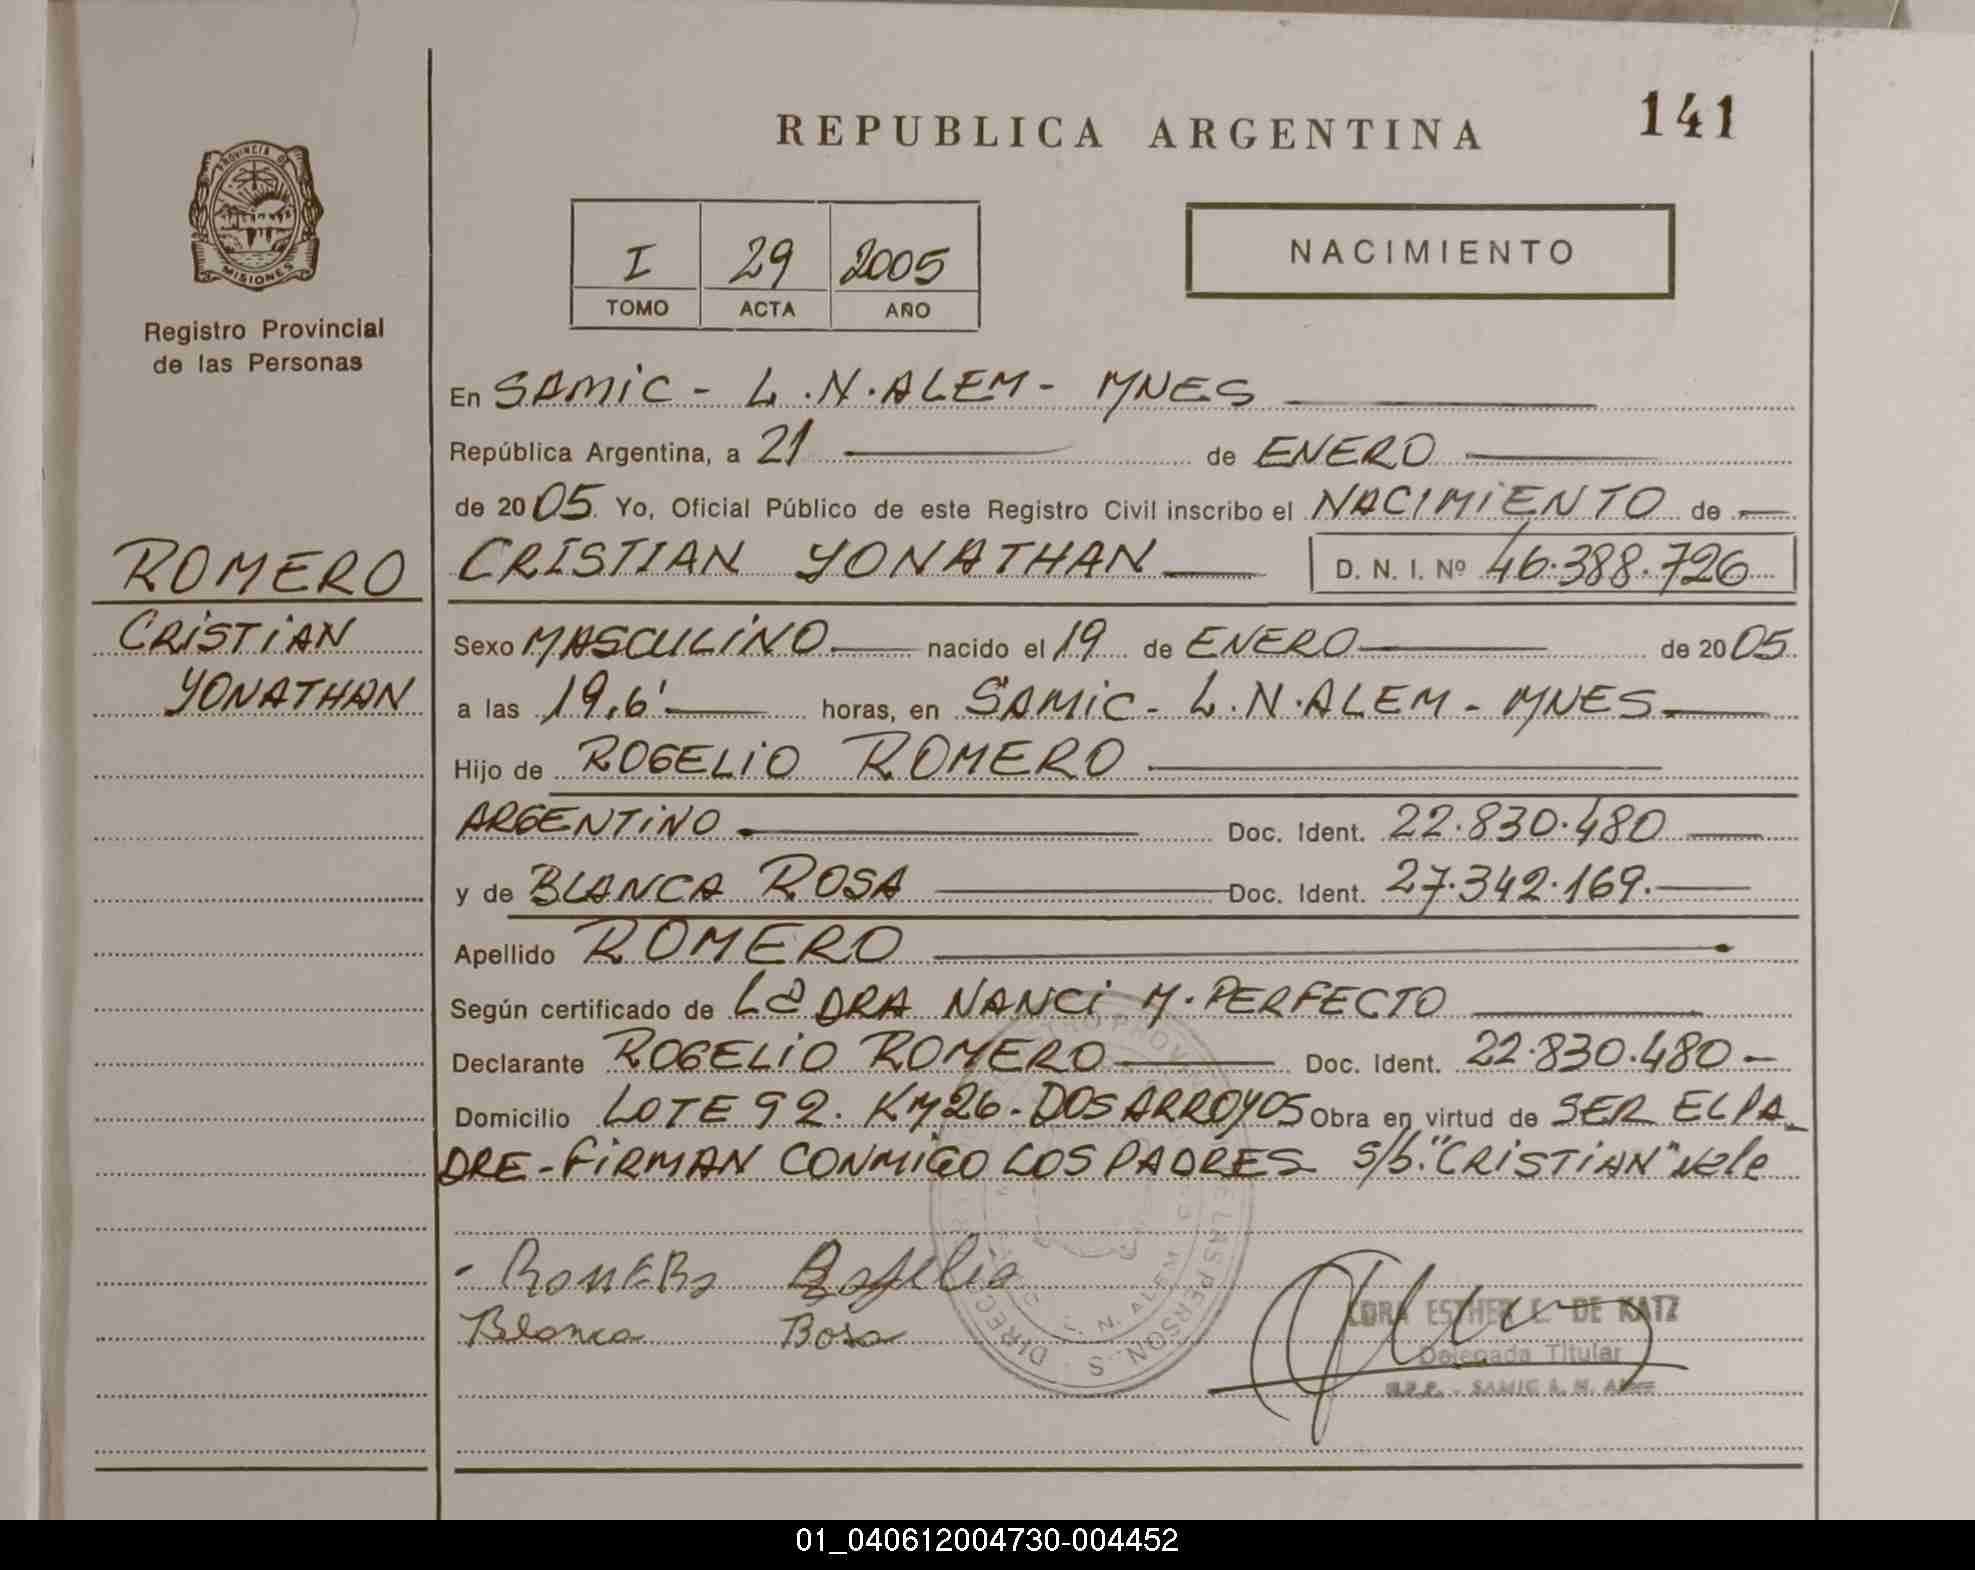 REPUBLICA ARGENTINA
141
PROVINCIA DE
MISIONES
Registro Provincial
de las Personas
I 29 2005
TOMO ACTA AÑO
NACIMIENTO
En SAMIC - L.N.ALEM - MNES
República Argentina, a 21 de ENERO
de 2005. Yo, Oficial Público de este Registro Civil inscribo el NACIMIENTO de
ROMERO
CRISTIAN
YONATHAN
CRISTIAN YONATHAN D. N. I. Nº 46.388.726
Sexo MASCULINO nacido el 19 de ENERO de 2005.
a las 19,6' horas, en SAMIC - L.N.ALEM - MNES
Hijo de ROGELIO ROMERO
ARGENTINO Doc. Ident. 22.830.480
y de BLANCA ROSA Doc. Ident. 27.342.169.
Apellido ROMERO
Según certificado de La DRA NANCI M. PERFECTO
Declarante ROGELIO ROMERO Doc. Ident. 22.830.480 -
Domicilio LOTE 92. KM26 - DOS ARROYOS Obra en virtud de SER EL PA
DRE - FIRMAN CONMIGO LOS PADRES S/b. "CRISTIAN" Vale
- ROMERO Rogelio
Blanca Rosa
L. N. ALEM
ESTHER E. DE KATZ
Delegada Titular
R.P.P. - SAMIC L. N. Alem
01_040612004730-004452